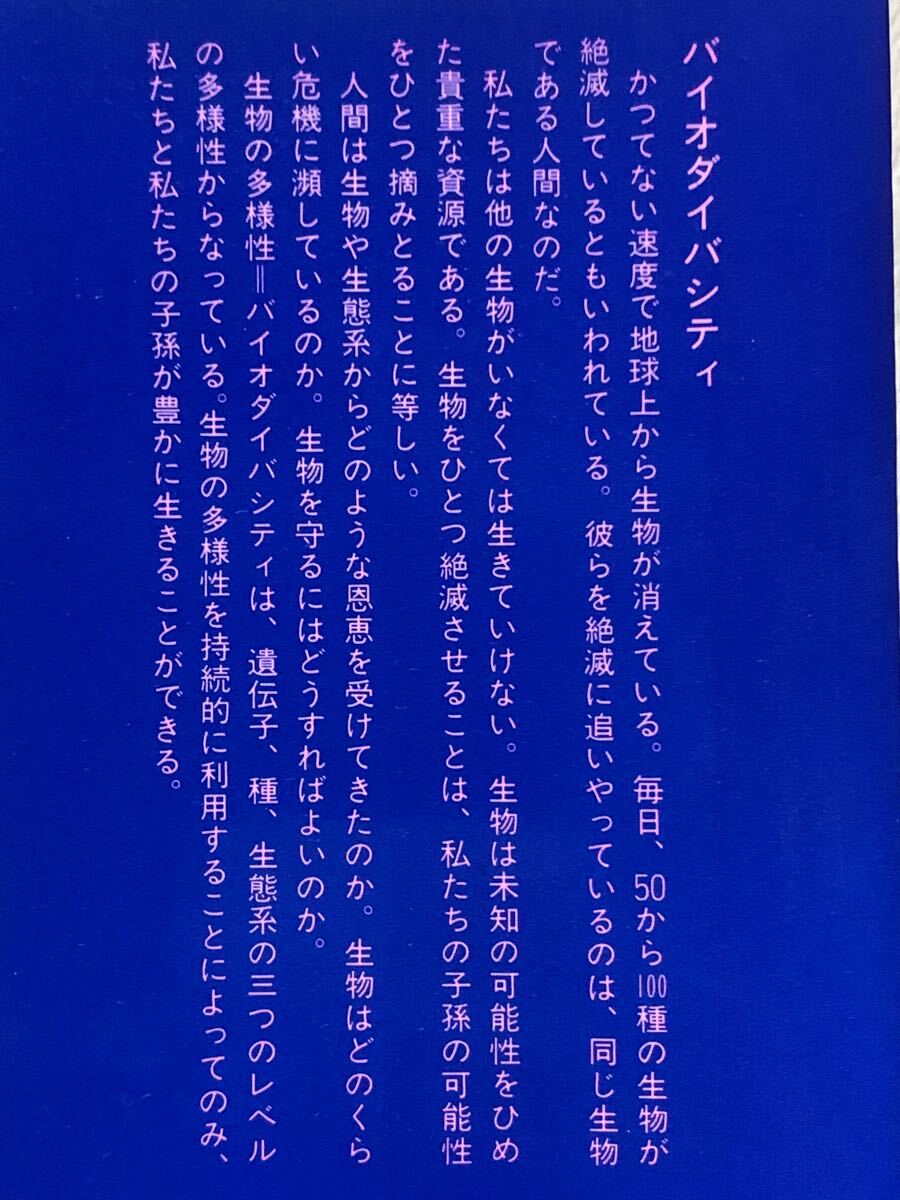 バイオダイバシティ
かつてない速度で地球上から生物が消えている。毎日、50から100種の生物が
絶滅しているともいわれている。彼らを絶滅に追いやっているのは、同じ生物
である人間なのだ。
私たちは他の生物がいなくては生きていけない。生物は未知の可能性をひめ
た貴重な資源である。生物をひとつ絶滅させることは、私たちの子孫の可能性
をひとつ摘みとることに等しい。
人間は生物や生態系からどのような恩恵を受けてきたのか。生物はどのくら
い危機に瀕しているのか。生物を守るにはどうすればよいのか。
生物の多様性＝バイオダイバシティは、遺伝子、種、生態系の三つのレベル
の多様性からなっている。生物の多様性を持続的に利用することによってのみ、
私たちと私たちの子孫が豊かに生きることができる。